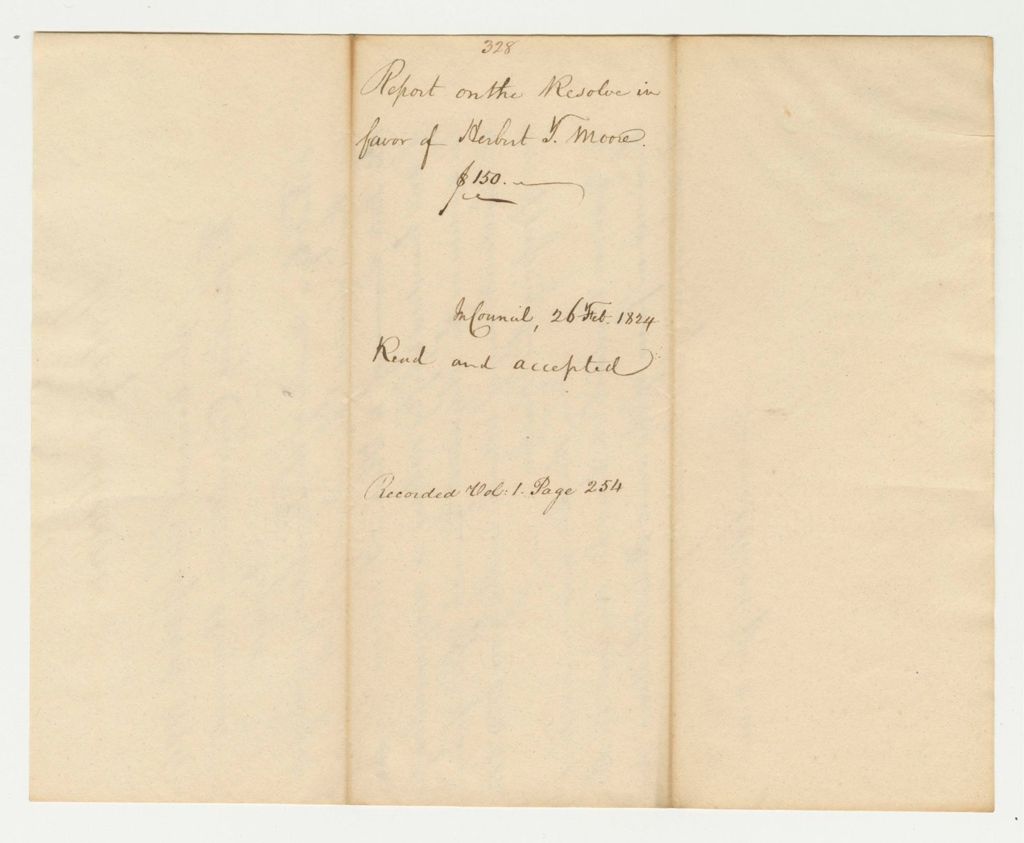 328
Report on the Resolve in
favor of Herbert T. Moore.
$150.
In Council, 26 Feb. 1824
Read and accepted
Recorded Vol: 1. Page 254